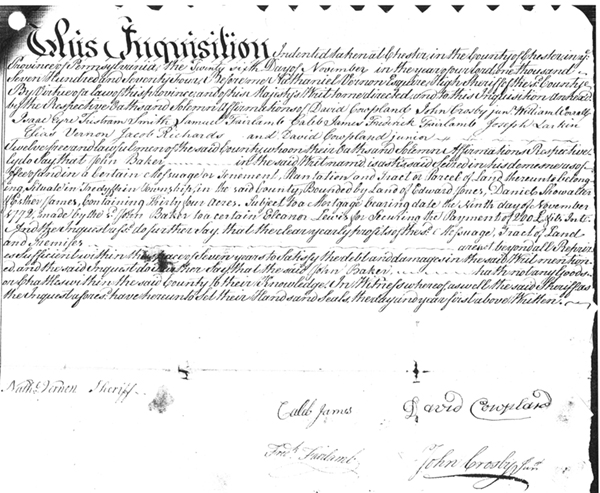 This Inquisition Indented taken at Chester, in the County of Chester, in ye
Province of Pennsylvania, the Twenty Sixth Day of November in the year of our Lord, one Thousand
Seven Hundred and Seventy Four, Before me Nathaniel Vernon Esquire, High Sheriff of the sd County
By Virtue of a Law of this Province, and of his Majesty's Writ to me directed, and to this Inquisition annexed
by the Respective Oaths and Solemn Affirmations of David Cowpland John Crosby junr William
Isaac Eyre Thomas Smith Samuel Fairlamb Caleb James Frederick Fairlamb Joseph Larkin
Elias Vernon Jacob Richards and David Cowpland junior
Twelve free and lawful men of the said County, who on their Oaths and Solemn Affirmations Respective
ly do Say that John Baker in the said Writ named is as it is said Seized in his demesne as of
Fee of and in a Certain Messuage or Tenement, Plantation and Tract or Parcel of Land thereunto belong
ing Situate in Tredyffrin Township, in the said County, Bounded by Land of Edward Jones, Daniel Showalter
& Esther James, Containing Thirty four Acres. Subject to a Mortgage bearing date the Ninth day of November
1772, made by the sd John Baker to a certain Eleanor Lewis for Securing the Payment of 200 £ & Int.
And the Inquest afsd do further Say, that the clear yearly profits of the sd Messuage, Tract of Land
and Premises are not beyond all Reprizes
es sufficient within the Space of Seven years to Satisfy the debt and damages in the said Writ mention
ed and the said Inquest do further Say that the said John Baker hath not any Goods
or Chattles within the said County to their Knowledge. In Witness whereof as well the said Sheriff as
the Inquest aforesd have hereunto Set their Hands and Seals, the day and year first above Written.
Nath: Vernon Sheriff
Caleb James David Cowpland
Fredk Fairlamb John Crosby Junr